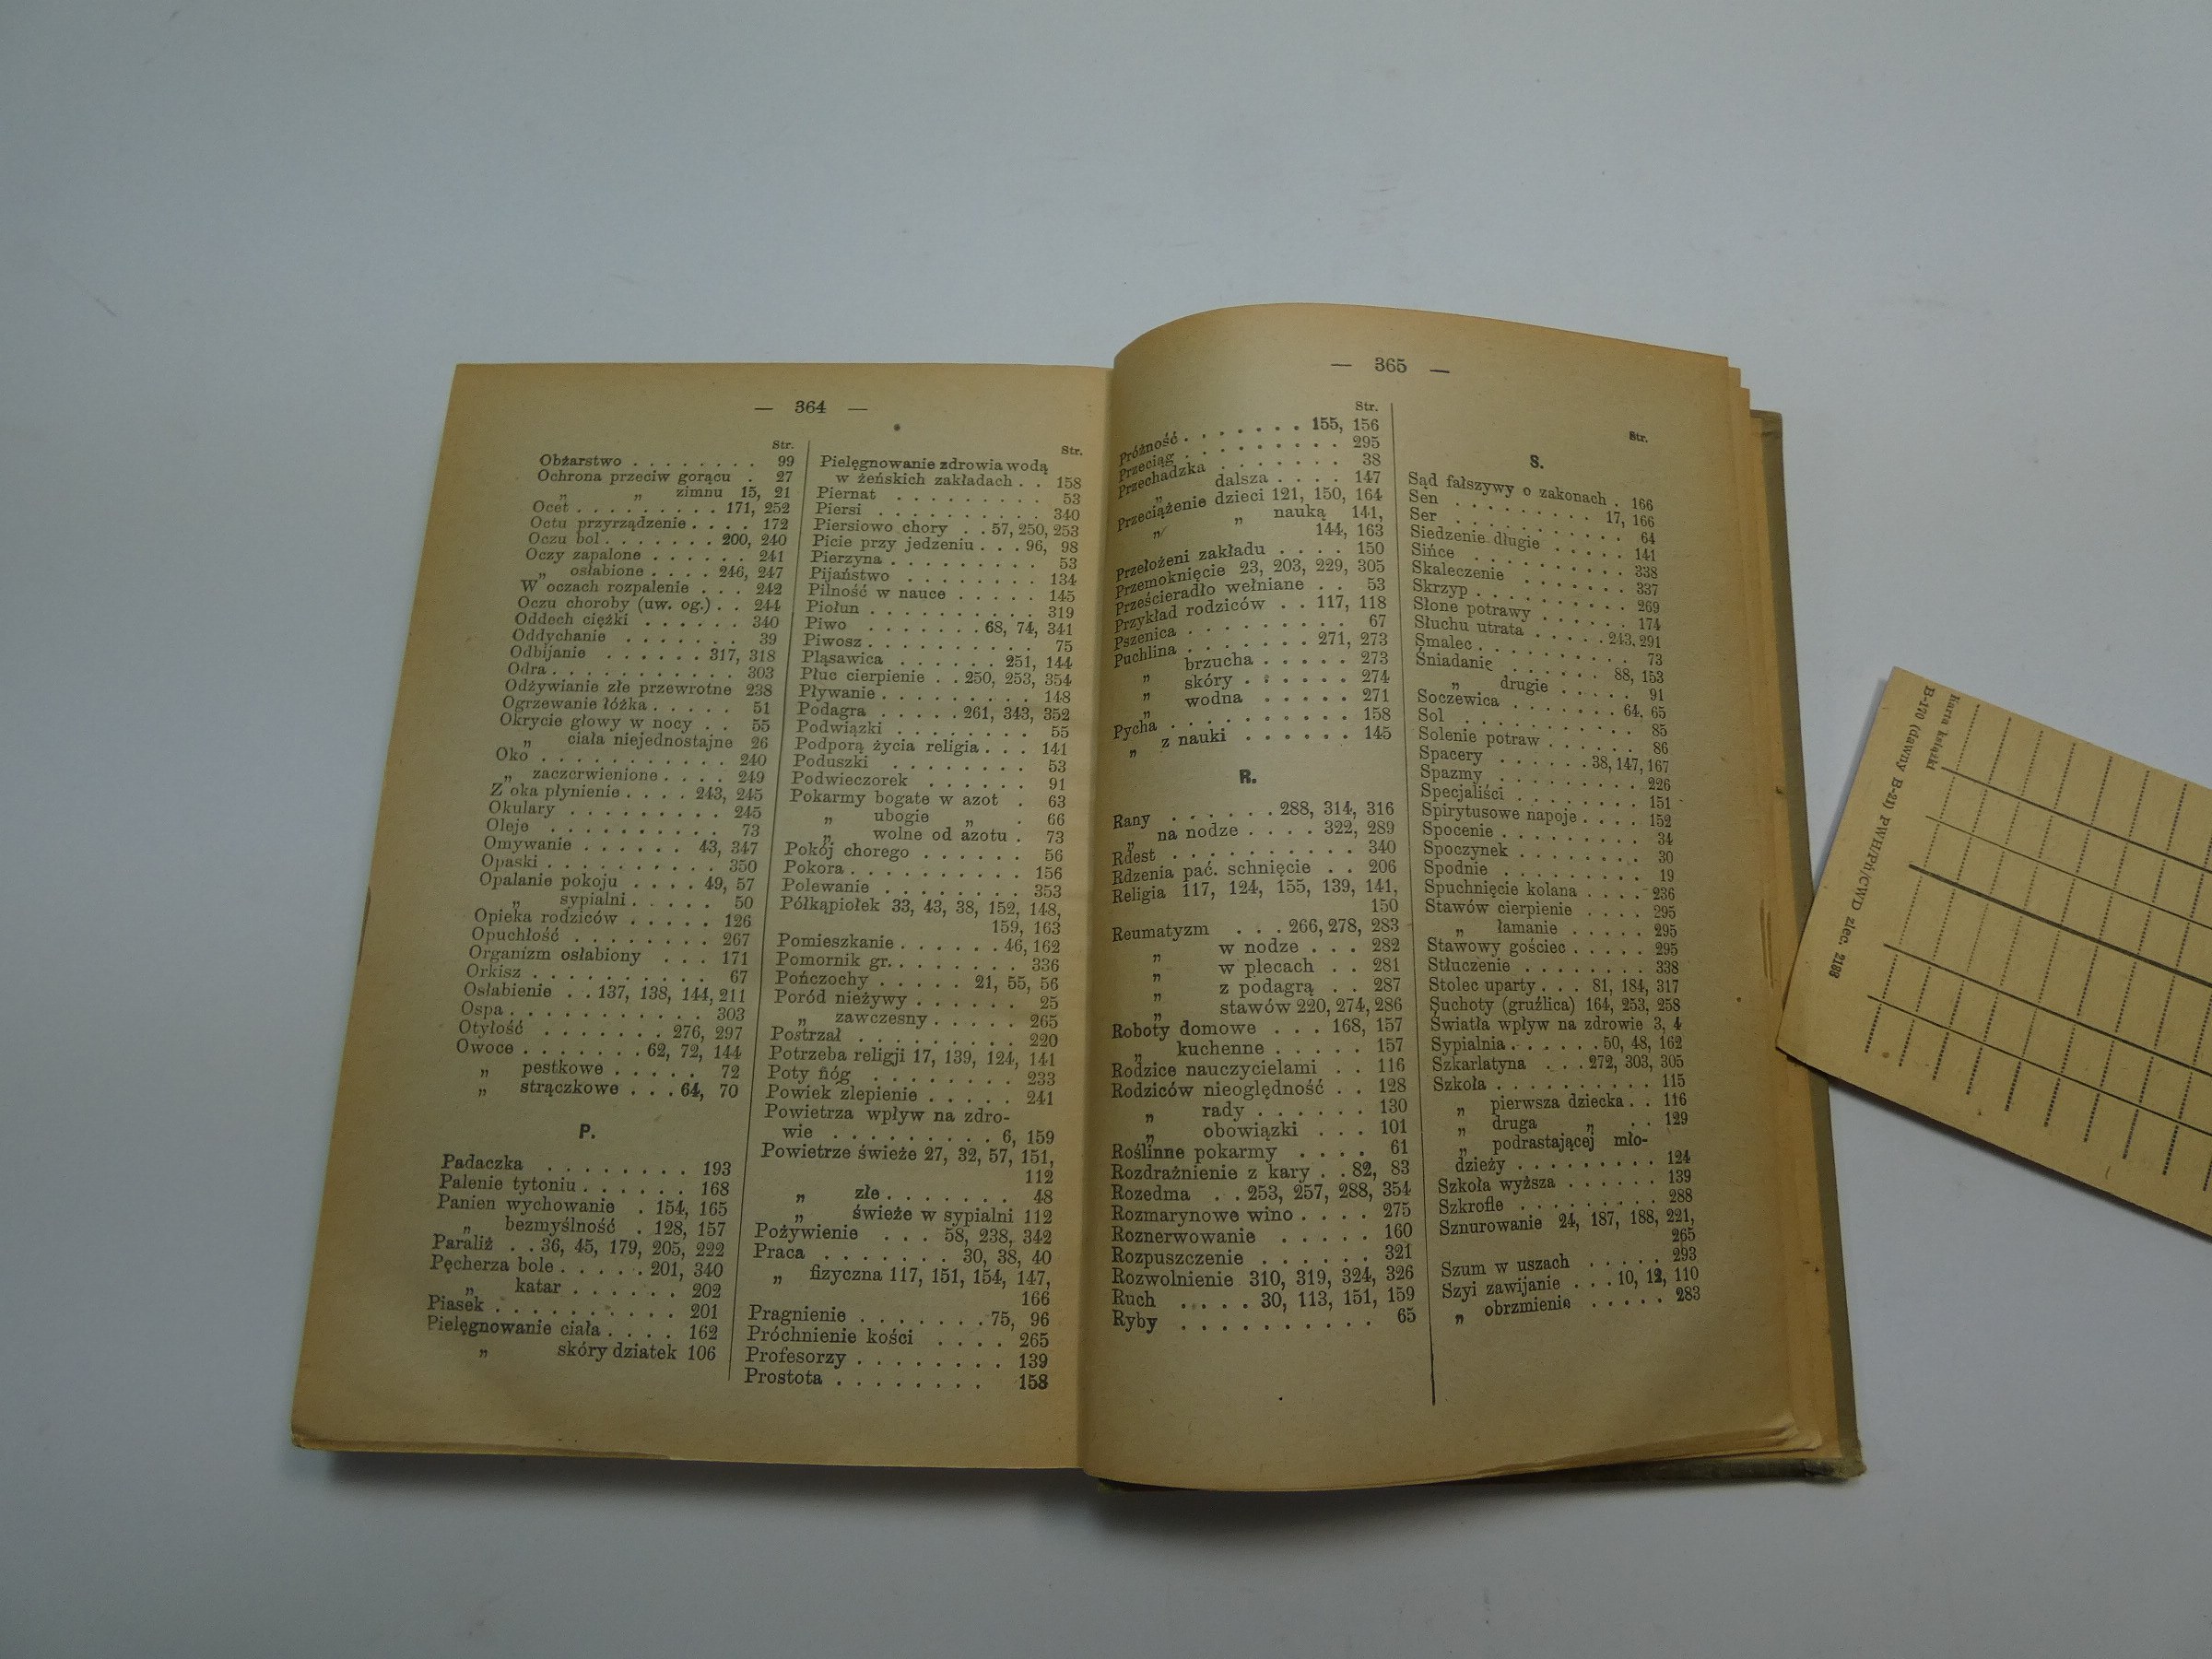 — 364 —
Str.
Obżarstwo . . . . . . . . 99
Ochrona przeciw gorącu . 27
„ „ zimnu 15, 21
Ocet . . . . . . . . . 171, 252
Octu przyrządzenie . . . . 172
Oczu bol . . . . . . . 200, 240
Oczy zapalone . . . . . . 241
„ osłabione . . . . 246, 247
W oczach rozpalenie . . . 242
Oczu choroby (uw. og.) . . 244
Oddech ciężki . . . . . . 340
Oddychanie . . . . . . . 39
Odbijanie . . . . . . 317, 318
Odra . . . . . . . . . . . 303
Odżywianie złe przewrotne 238
Ogrzewanie łóżka . . . . . 51
Okrycie głowy w nocy . . 55
„ ciała niejednostajne 26
Oko . . . . . . . . . . . 240
„ zaczerwienione . . . . 249
Z oka płynienie . . . . 243, 245
Okulary . . . . . . . . . 245
Oleje . . . . . . . . . . 73
Omywanie . . . . . . 43, 347
Opaski . . . . . . . . . . 350
Opalanie pokoju . . . . 49, 57
„ sypialni . . . . . 50
Opieka rodziców . . . . . 126
Opuchłość . . . . . . . . 267
Organizm osłabiony . . . 171
Orkisz . . . . . . . . . . 67
Osłabienie . . 137, 138, 144, 211
Ospa . . . . . . . . . . . 303
Otyłość . . . . . . . 276, 297
Owoce . . . . . . . 62, 72, 144
„ pestkowe . . . . . 72
„ strączkowe . . . 64, 70
P.
Padaczka . . . . . . . . 193
Palenie tytoniu . . . . . . 168
Panien wychowanie . 154, 165
„ bezmyślność . 128, 157
Paraliż . . 36, 45, 179, 205, 222
Pęcherza bole . . . . . 201, 340
„ katar . . . . . . 202
Piasek . . . . . . . . . . 201
Pielęgnowanie ciała . . . . 162
„ skóry dziatek 106
Str.
Pielęgnowanie zdrowia wodą
w żeńskich zakładach . . 158
Piernat . . . . . . . . . 53
Piersi . . . . . . . . . . 340
Piersiowo chory . . 57, 250, 253
Picie przy jedzeniu . . . 96, 98
Pierzyna . . . . . . . . . 53
Pijaństwo . . . . . . . . 134
Pilność w nauce . . . . . 145
Piołun . . . . . . . . . . 319
Piwo . . . . . . . 68, 74, 341
Piwosz . . . . . . . . . . 75
Pląsawica . . . . . . 251, 144
Płuc cierpienie . . 250, 253, 354
Pływanie . . . . . . . . . 148
Podagra . . . . . 261, 343, 352
Podwiązki . . . . . . . . 55
Podporą życia religia . . . 141
Poduszki . . . . . . . . 53
Podwieczorek . . . . . . . 91
Pokarmy bogate w azot . 63
„ ubogie „ . 66
„ wolne od azotu . 73
Pokój chorego . . . . . . 56
Pokora . . . . . . . . . . 156
Polewanie . . . . . . . . 353
Półkąpiołek 33, 43, 38, 152, 148,
159, 163
Pomieszkanie . . . . . . 46, 162
Pomornik gr. . . . . . . . 336
Pończochy . . . . . 21, 55, 56
Poród nieżywy . . . . . . 25
„ zawczesny . . . . . 265
Postrzał . . . . . . . . . 220
Potrzeba religji 17, 139, 124, 141
Poty nóg . . . . . . . . 233
Powiek zlepienie . . . . . 241
Powietrza wpływ na zdro-
wie . . . . . . . . . 6, 159
Powietrze świeże 27, 32, 57, 151,
112
„ złe . . . . . . . 48
„ świeże w sypialni 112
Pożywienie . . . 58, 238, 342
Praca . . . . . . . 30, 38, 40
„ fizyczna 117, 151, 154, 147,
166
Pragnienie . . . . . . . 75, 96
Próchnienie kości . . . . 265
Profesorzy . . . . . . . . 139
Prostota . . . . . . . . 158
— 365 —
Str.
Próżność . . . . . . . 155, 156
Przeciąg . . . . . . . . 295
Przechadzka . . . . . . . 38
„ dalsza . . . . 147
Przeciążenie dzieci 121, 150, 164
„ „ nauką 141,
144, 163
Przełożeni zakładu . . . . 150
Przemoknięcie 23, 203, 229, 305
Prześcieradło wełniane . . 53
Przykład rodziców . . 117, 118
Pszenica . . . . . . . . . 67
Puchlina . . . . . . . 271, 273
„ brzucha . . . . . 273
„ skóry . . . . . . 274
„ wodna . . . . . 271
Pycha . . . . . . . . . . 158
„ z nauki . . . . . . 145
R.
Rany . . . . . . 288, 314, 316
„ na nodze . . . . 322, 289
Rdest . . . . . . . . . . 340
Rdzenia pać. schnięcie . . 206
Religia 117, 124, 155, 139, 141,
150
Reumatyzm . . . 266, 278, 283
„ w nodze . . . 282
„ w plecach . . 281
„ z podagrą . . 287
„ stawów 220, 274, 286
Roboty domowe . . . 168, 157
„ kuchenne . . . . . 157
Rodzice nauczycielami . . 116
Rodziców nieoględność . . 128
„ rady . . . . . . 130
„ obowiązki . . . 101
Roślinne pokarmy . . . . 61
Rozdrażnienie z kary . . 82, 83
Rozedma . . 253, 257, 288, 354
Rozmarynowe wino . . . . 275
Roznerwowanie . . . . . 160
Rozpuszczenie . . . . . . 321
Rozwolnienie 310, 319, 324, 326
Ruch . . . . 30, 113, 151, 159
Ryby . . . . . . . . . . 65
Str.
S.
Sąd fałszywy o zakonach . 166
Sen . . . . . . . . . 17, 166
Ser . . . . . . . . . . 64
Siedzenie długie . . . . . 141
Sińce . . . . . . . . . 338
Skaleczenie . . . . . . 337
Skrzyp . . . . . . . . . 269
Słone potrawy . . . . . . 174
Słuchu utrata . . . . . 243, 291
Smalec . . . . . . . . . . 73
Śniadanie . . . . . . 88, 153
„ drugie . . . . . 91
Soczewica . . . . . . . 64, 65
Sol . . . . . . . . . . 85
Solenie potraw . . . . . . 86
Spacery . . . . . . 38, 147, 167
Spazmy . . . . . . . . . 226
Specjaliści . . . . . . . . 151
Spirytusowe napoje . . . . 152
Spocenie . . . . . . . . . 34
Spoczynek . . . . . . . . 30
Spodnie . . . . . . . . . 19
Spuchnięcie kolana . . . . 236
Stawów cierpienie . . . . 295
„ łamanie . . . . . 295
Stawowy gościec . . . . . 295
Stłuczenie . . . . . . . . 338
Stolec uparty . . . 81, 184, 317
Suchoty (gruźlica) 164, 253, 258
Światła wpływ na zdrowie 3, 4
Sypialnia . . . . . . 50, 48, 162
Szkarlatyna . . . 272, 303, 305
Szkoła . . . . . . . . . . 115
„ pierwsza dziecka . . 116
„ druga „ . . 129
„ podrastającej mło-
dzieży . . . . . . . . . 124
Szkoła wyższa . . . . . . 139
Szkrofle . . . . . . . . . 288
Sznurowanie 24, 187, 188, 221,
265
Szum w uszach . . . . . 293
Szyi zawijanie . . . 10, 12, 110
„ obrzmienie . . . . . 283
Karta książki
B-170 (dawny B-21) PWH/Pń/CWD zlec. 2183